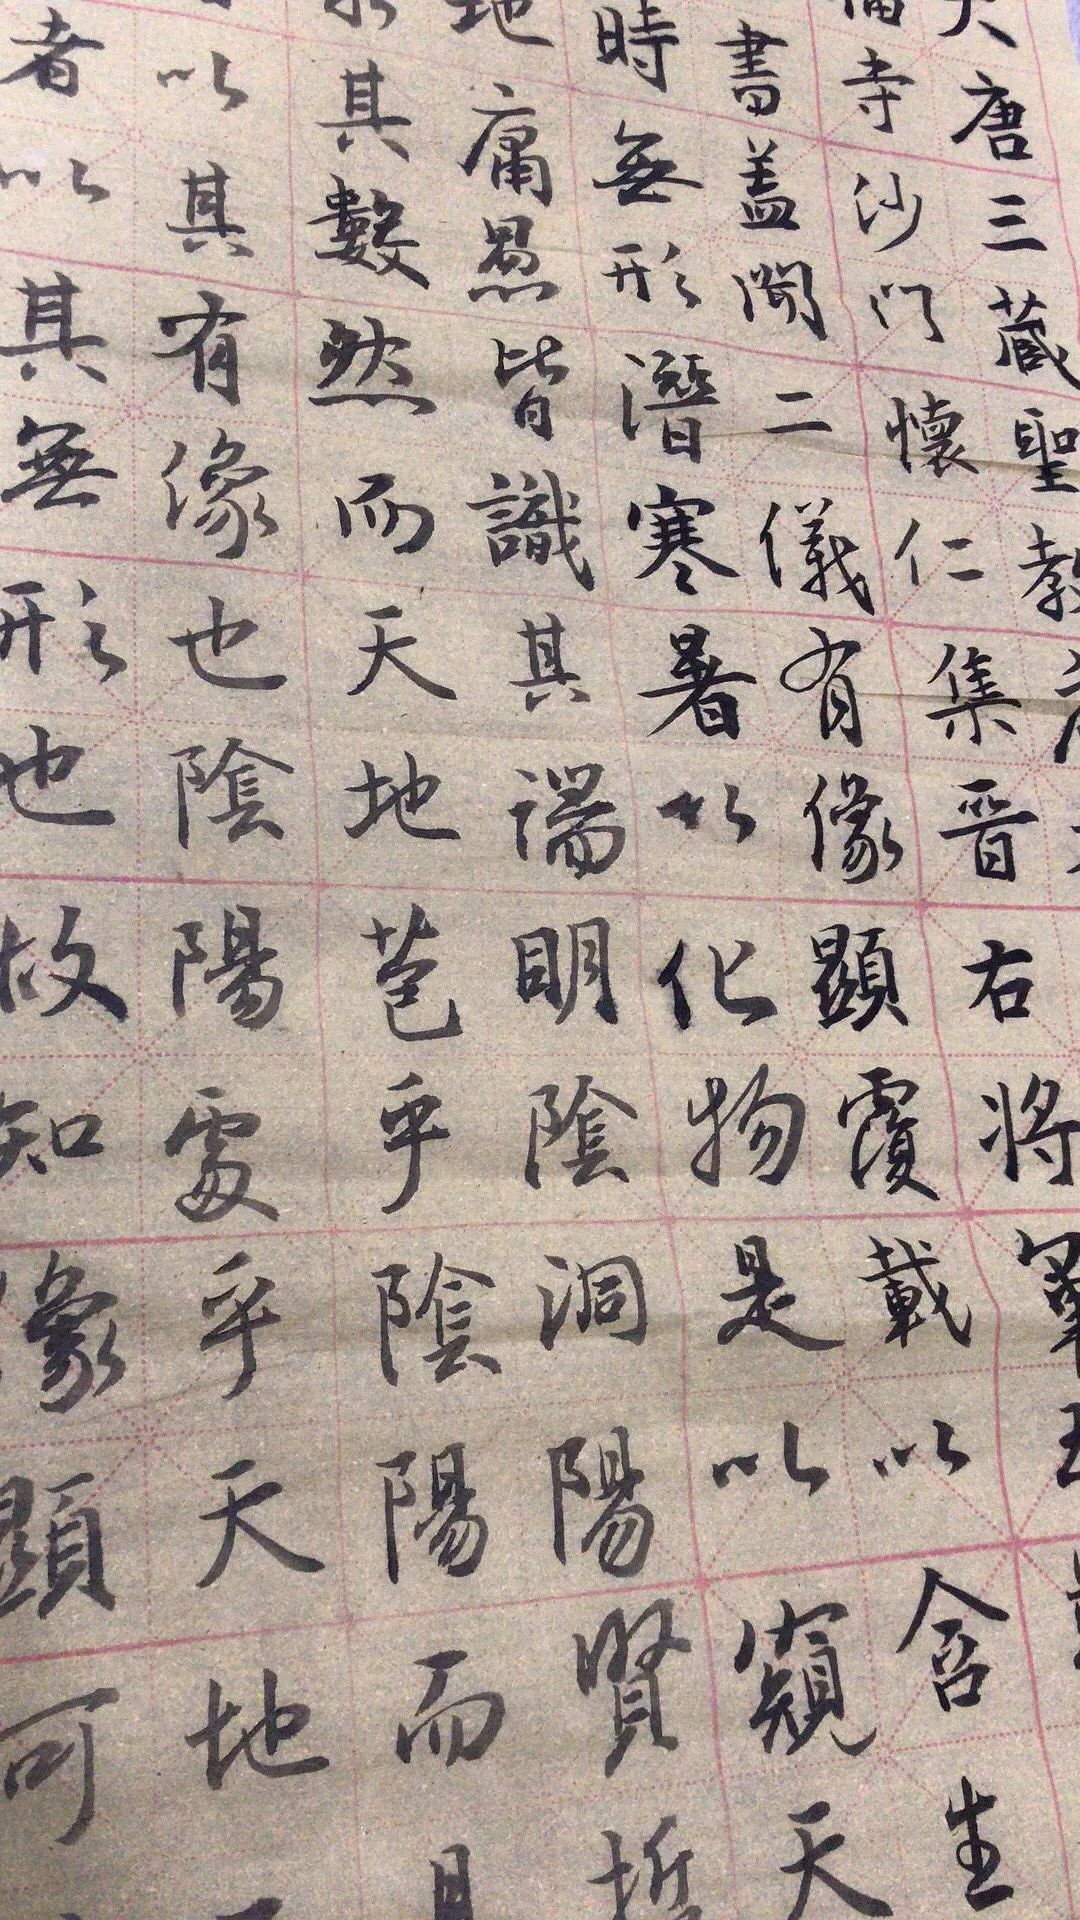 大唐三藏聖教序
福寺沙門懷仁集晉右將軍王
書盖聞二儀有像顯覆載以含生
時無形潛寒暑以化物是以窺天
地庸愚皆識其端明陰洞陽賢哲
其數然而天地苞乎陰陽而
以其有像也陰陽處乎天地
者以其無形也故知像顯可